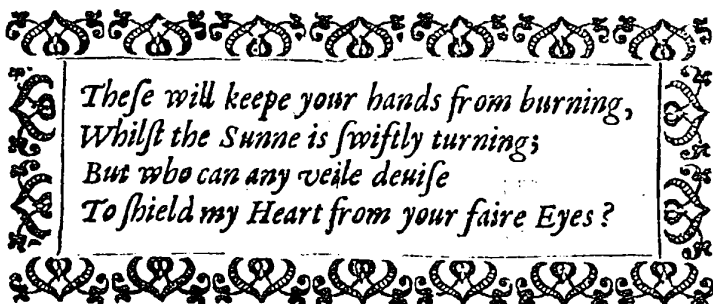 Theſe will keepe your hands from burning,
Whilſt the Sunne is ſwiftly turning;
But who can any veile deuiſe
To ſhield my Heart from your faire Eyes?